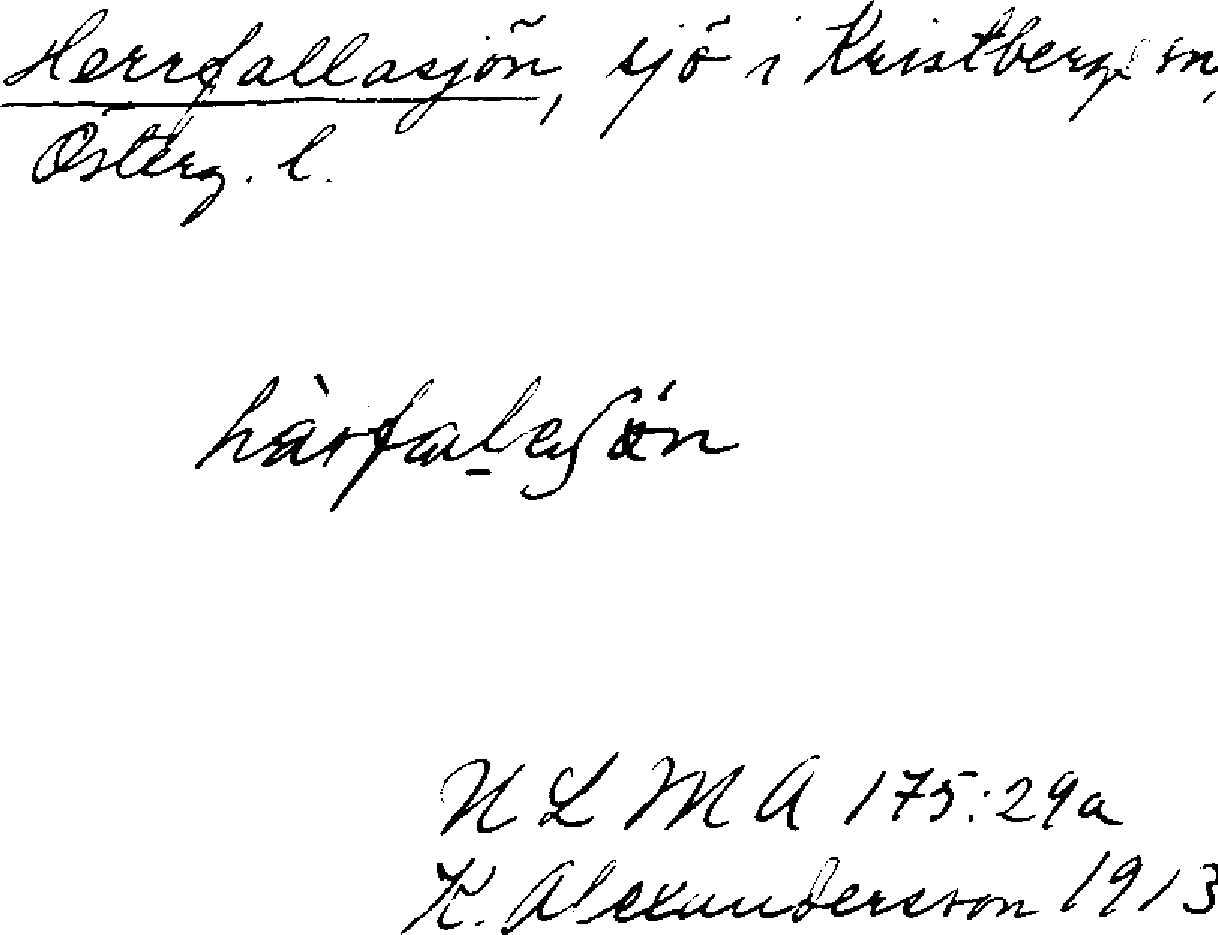 Herrfallasjön, sjö i Kristbergs sn,
Österg. l.
N L M A 175:29a
K. Alexandersson 1913